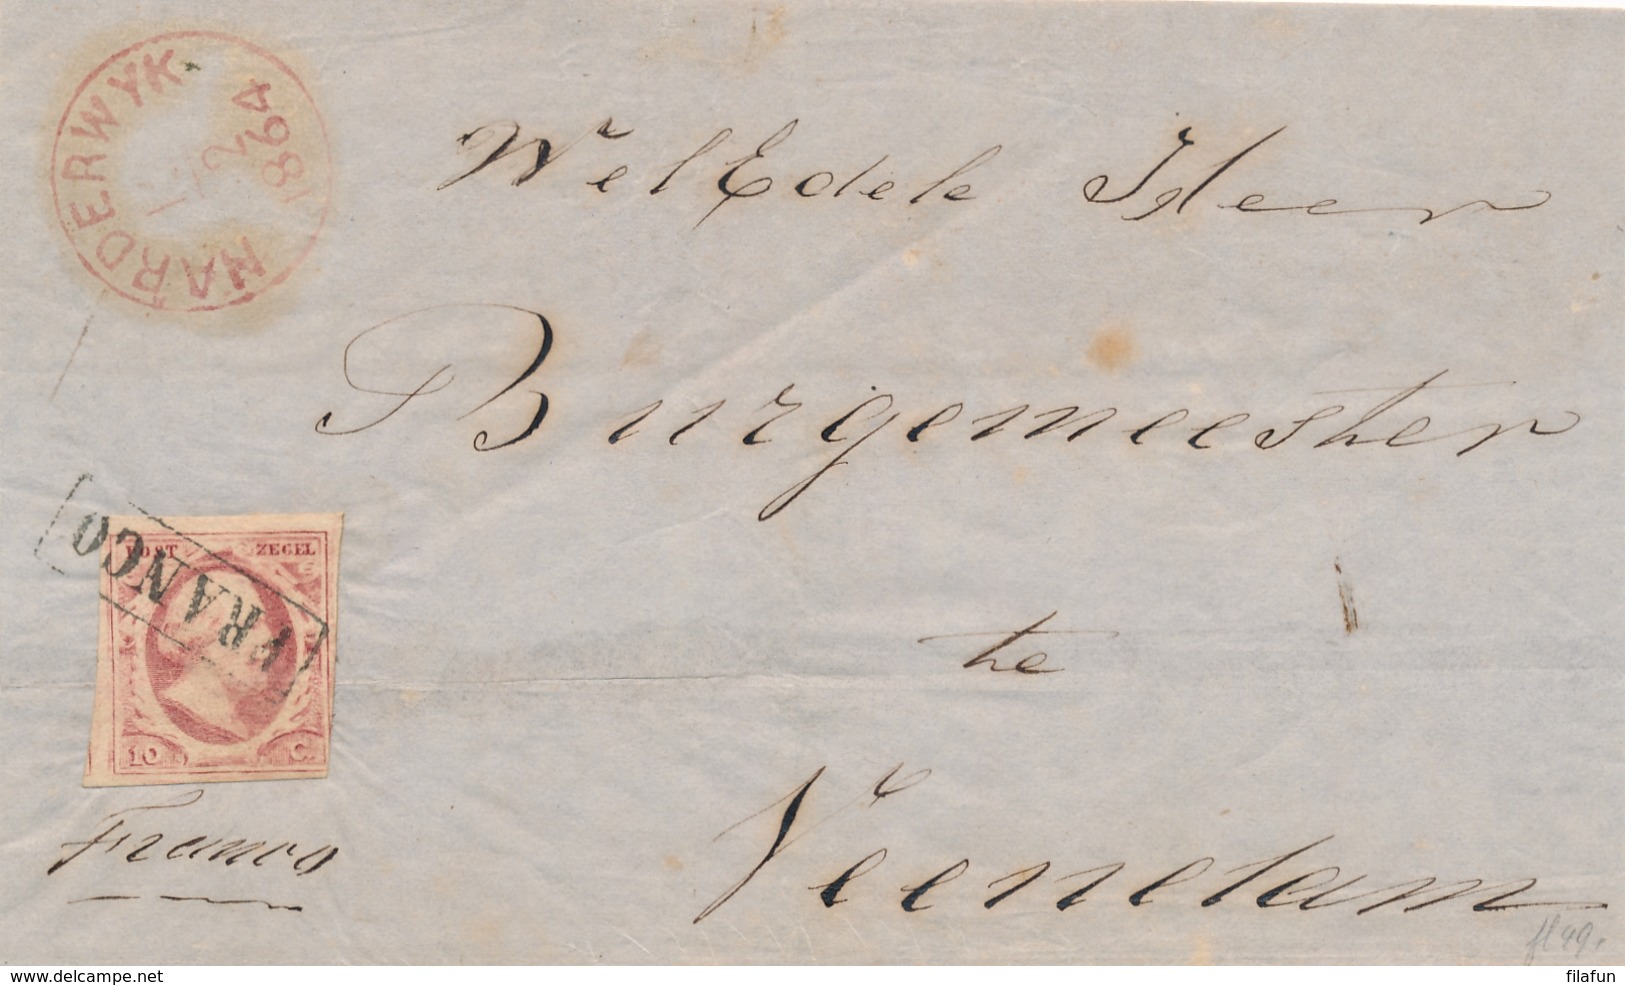 HARDERWYK
1864
WelEdele Heer
Burgemeester
FRANCO
POST ZEGEL
te
10 C.
Veendam
Franco
fl 49,
www.delcampe.net
filafun